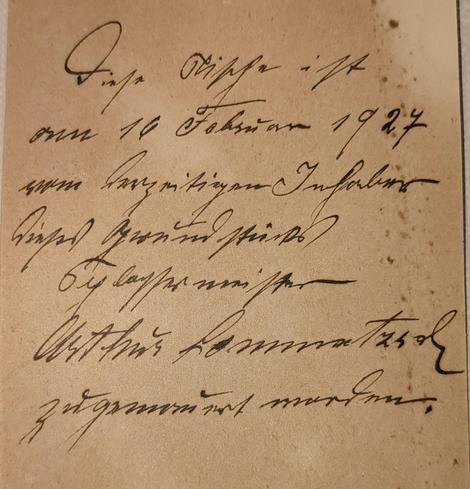 Diese Nische ist
am 16 Februar 1927
vom derzeitigen Inhaber
dieses Grundstücks
Schlossermeister
Arthur Lommatzsch
zugemauert worden.